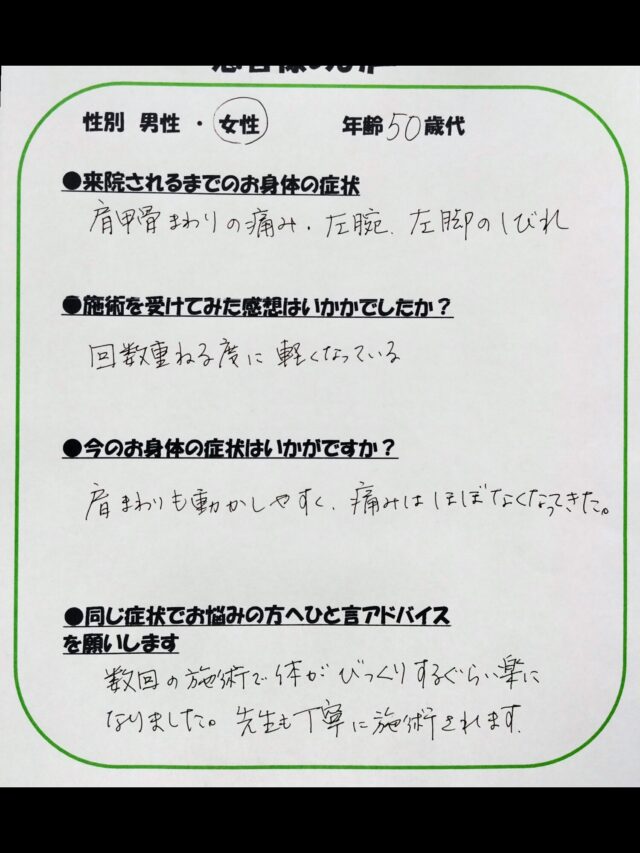 性別 男性 ・ 女性 年齢 50 歳代
●来院されるまでのお身体の症状
肩甲骨まわりの痛み・左腕、左脚のしびれ
●施術を受けてみた感想はいかかでしたか?
回数重ねる度に軽くなっている
●今のお身体の症状はいかがですか?
肩まわりも動かしやすく、痛みはほぼなくなってきた。
●同じ症状でお悩みの方へひと言アドバイス
を願いします
数回の施術で体がびっくりするぐらい楽に
なりました。先生も丁寧に施術されます.